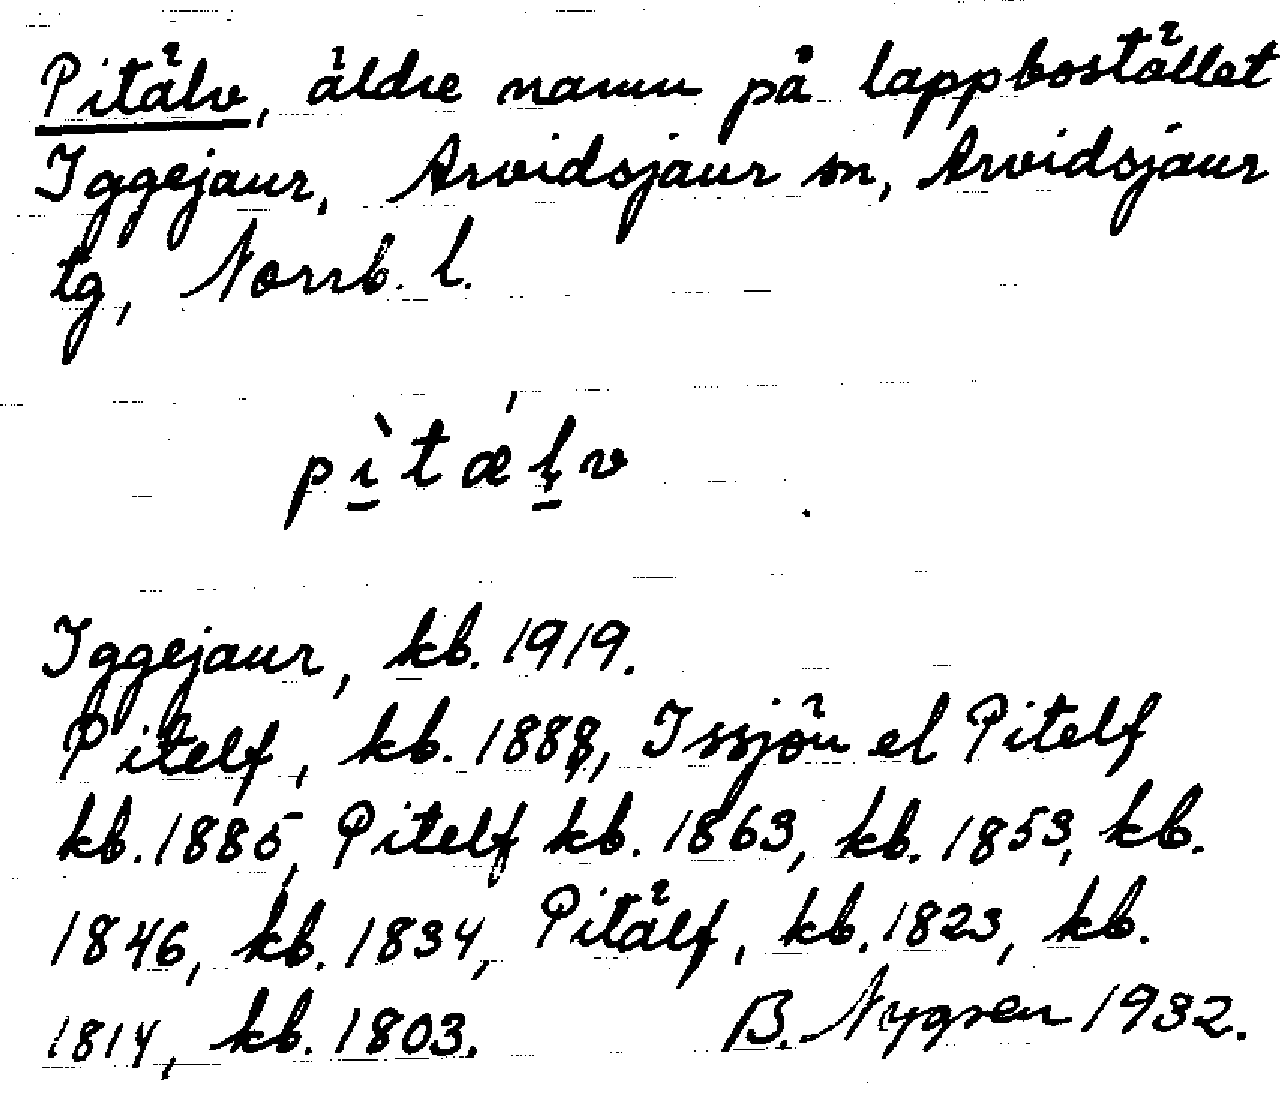 Pitälv, äldre namn på lappbostället
Iggejaur, Arvidsjaur sn, Arvidsjaur
tg, Norrb. l.
pìtǽl̥v
Iggejaur, kb. 1919.
Pitelf, kb. 1888, Issjön el Pitelf
kb. 1885, Pitelf kb. 1863, kb. 1853, kb.
1846, kb. 1834, Pitälf, kb. 1823, kb.
1814, kb. 1803. B. Nygren 1932.